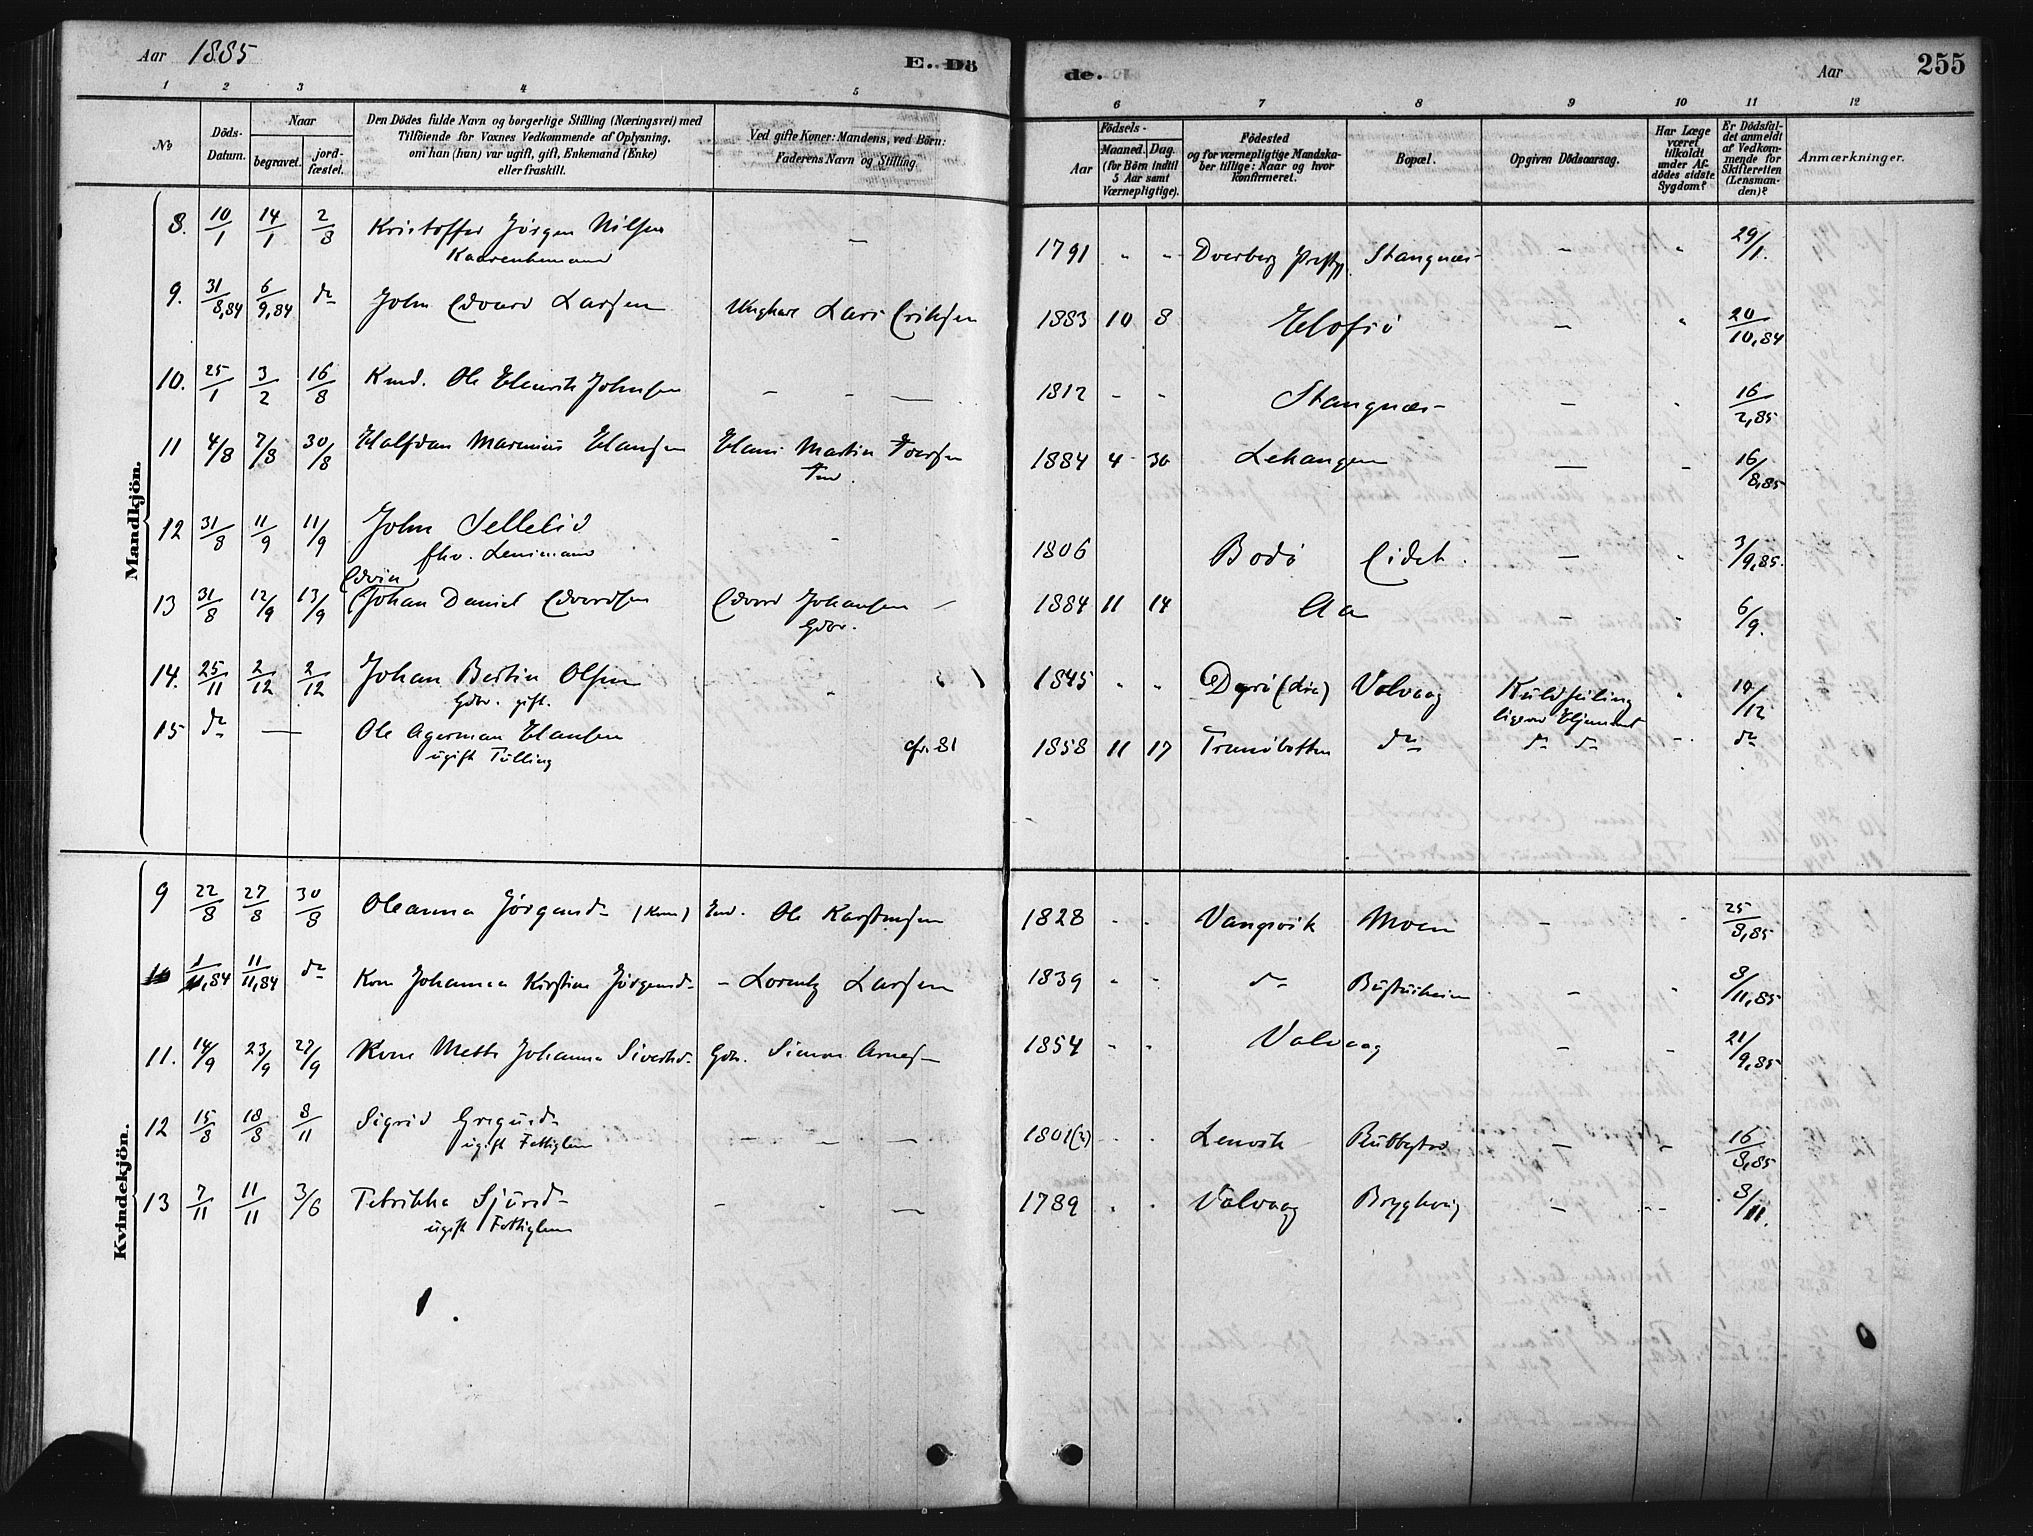 Aar 1885 E. Dö de. Aar 255
1 2 3 4 5 6 7 8 9 10 11 12
No
Döds-Datum.
Naar
begravet. jord-fæstet.
Den Dödes fulde Navn og borgerlige Stilling (Næringsvei) med
Tilföiende for Voxnes Vedkommende af Oplysning.
om han (hun) var ugift, gift, Enkemand (Enke)
eller fraskilt.
Ved gifte Koner: Mandens, ved Börn:
Faderens Navn og Stilling.
Födsels-
Aar Maaned. Dag.
(for Börn indtil
5 Aar samt
Værnepligtige).
Födested
og for værnepligtige Mandska-
ber tillige: Naar og hvor
konfirmeret.
Bopæl.
Opgiven Dödsaarsag.
Har Læge
været
tilkaldt
under Af-
dödes sidste
Sygdom?
Er Dödsfal-
det anmeldt
af Vedkom-
mende for
Skifteretten
(Lensman-
den)?
Anmærkninger.
Mandkjön.
8. 10/1 14/1 2/8 Kristoffer Jørgen Nilsen — 1791 " " Dverberg Prstgj. Stangnæs - " 29/1.
Kaarenkemand
9. 31/8,84 6/9,84 do John Edvard Larsen Ungkarl Lars Eriksen 1883 10 8 Hofsø — " 20/10,84
10. 25/1 3/2 16/8 Kmd. Ole Henrik Johnsen - - — 1812 - - Stangnæs — " 16/2,85
11 4/8 7/8 30/8 Halfdan Marinius Hansen Hans Martin Iversen 1884 4 30 Lekangen — - 16/8,85
Ind.
12 31/8 11/9 11/9 John Sellelid - 1806 Bodø Eidet. — " 3/9,85.
fhv. Lensmand
Edvin
13 31/8 12/9 13/9 Johan Daniel Edvardsen Edvard Johansen — 1884 11 14 Aa - " 6/9.
Gdbr.
14. 25/11 2/12 2/12 Johan Bertin Olsen - 1845 " " Dyrø Valvaag Kuldseiling " 14/12
Gdbr. gift.
15 do — Ole Agerman Hansen cfr. 81 1858 11 17 Tranøbotten do do do - do
ugift Tølling
Kvindekjön.
9 22/8 27/8 30/8 Oleanna Jørgensd. (Kone) Ind. Ole Karstensen 1828 . . Vangsvik Moen - - 25/8,85
10 1/11,84 11/11,84 do Kone Johanna Kirstine Jørgensd. - Lorentz Larsen 1839 " - do — - 8/11,85
11. 14/9 23/9 27/9 Kone Mette Johanna Sivertsd. Gdbr. Simon Arnes— 1854 " " Valvaag — - 21/9,85
12 15/8 18/8 8/11 Sigrid Gregusd. — - — 1801(2) . . Lenvik Rubbestad — - 16/8,85
ugift Fattiglem
13 7/11 11/11 3/6 Petrikka Sjursd. - . — 1789 . . Valvaag — - - 8/11.
ugift Fattiglem